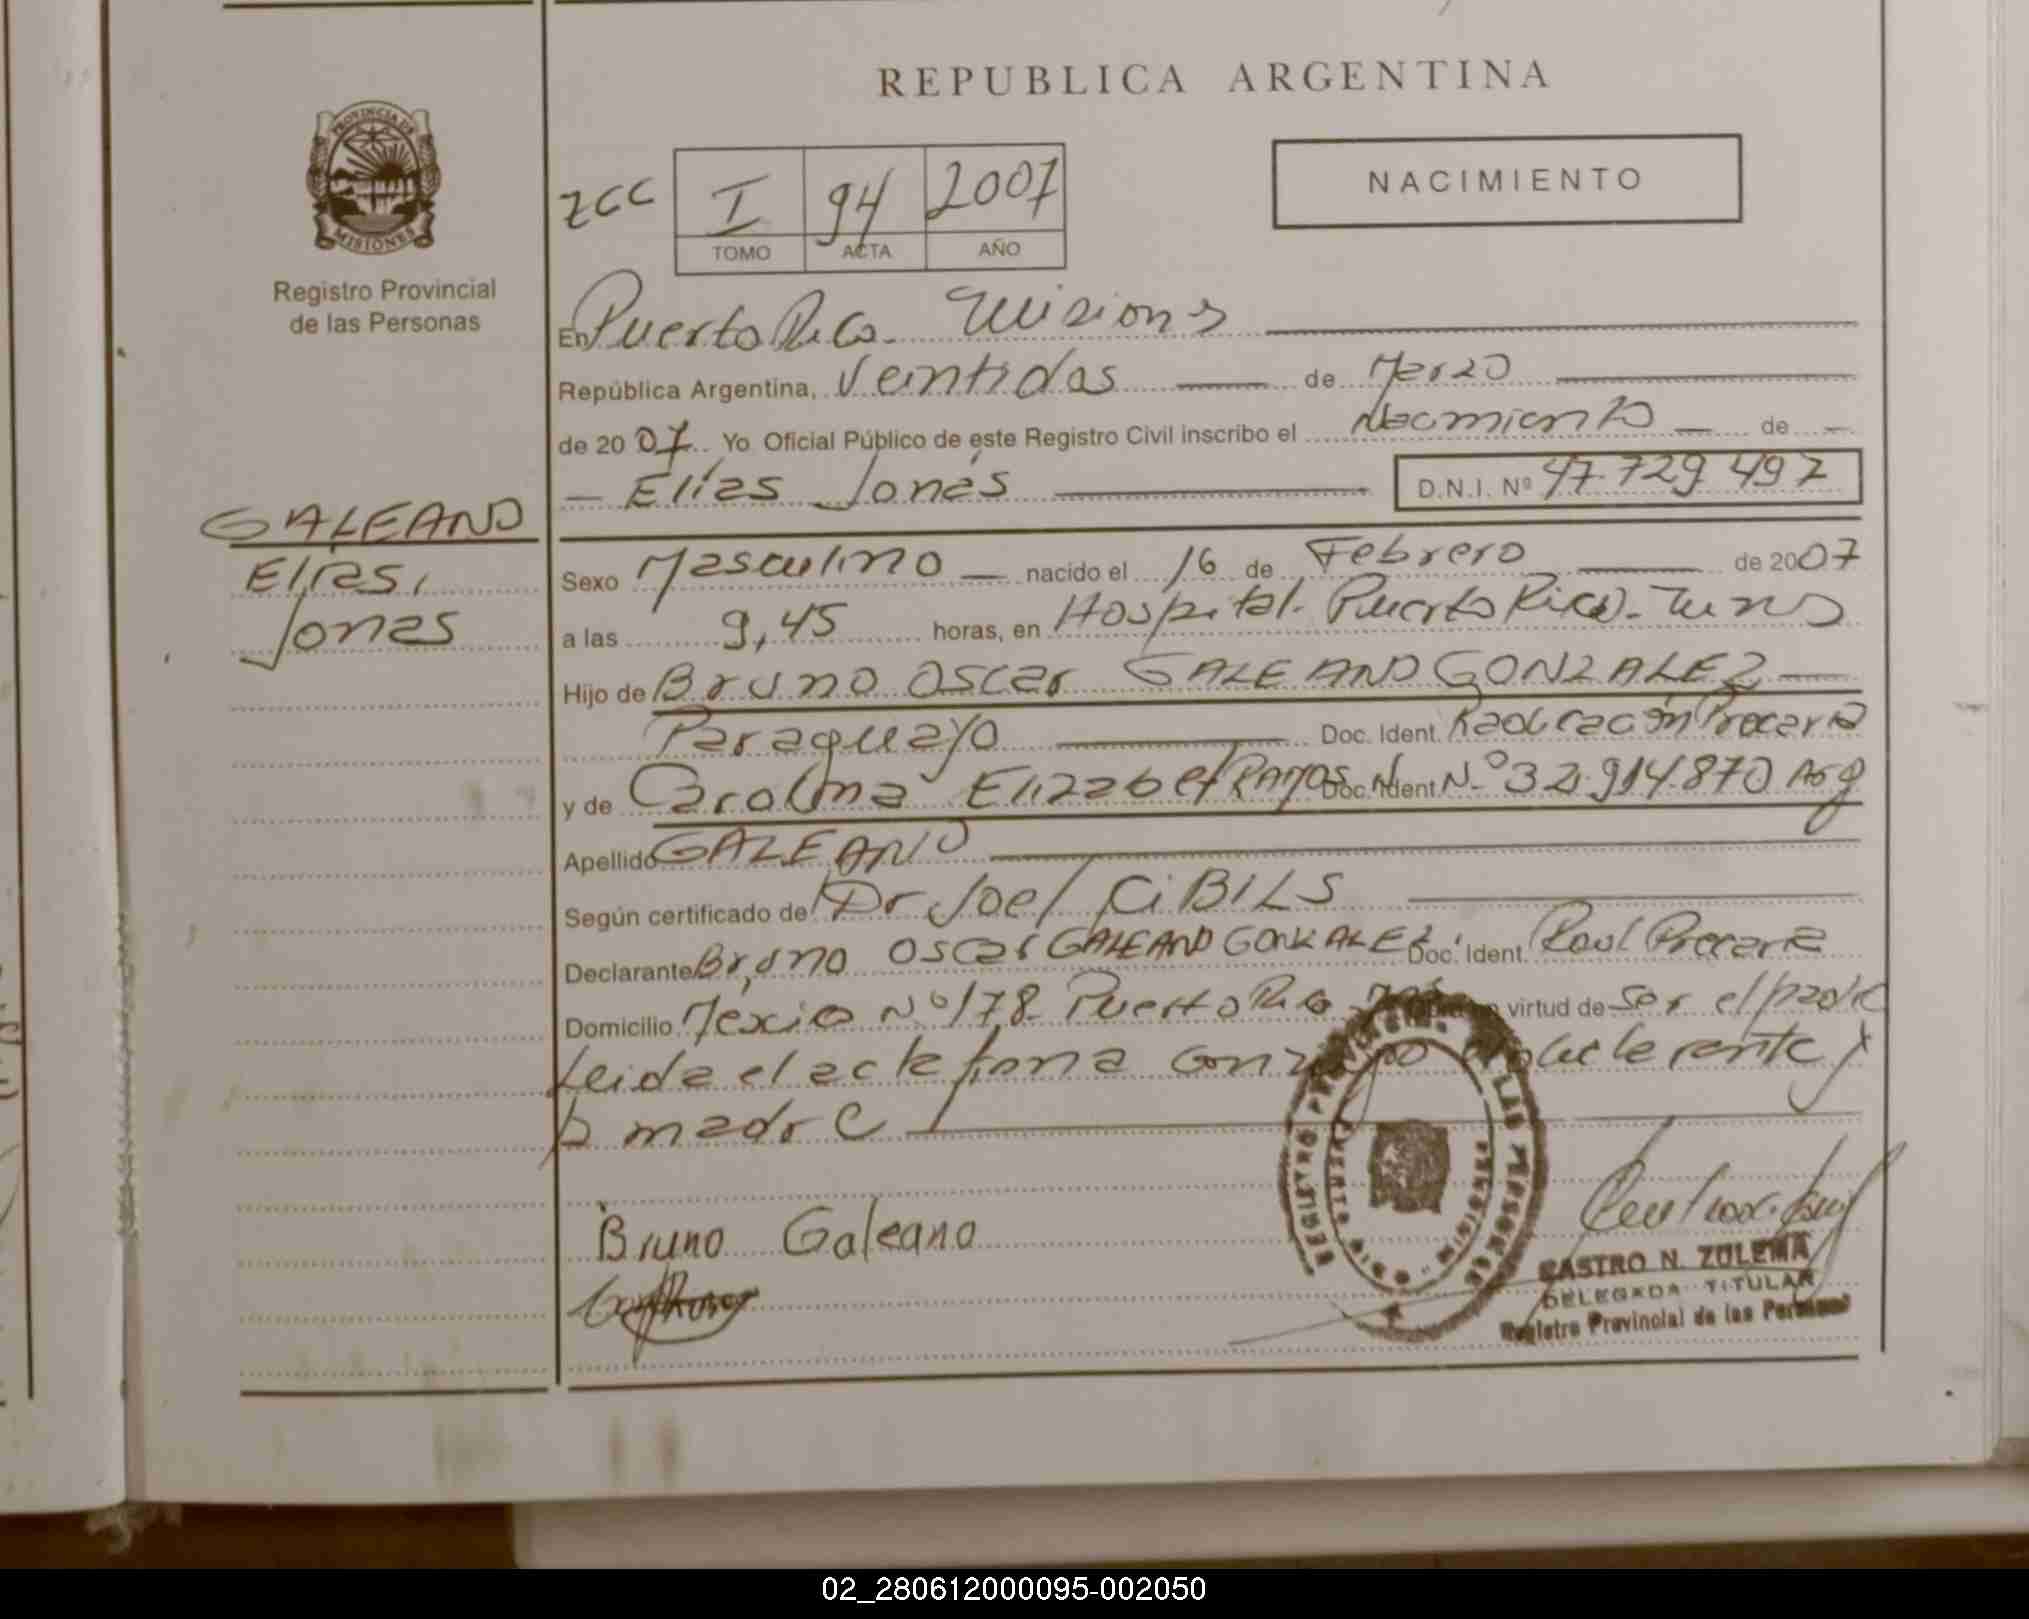 REPUBLICA ARGENTINA
PROVINCIA DE
MISIONES
Registro Provincial
de las Personas
zcc
I 94 2007
TOMO ACTA AÑO
NACIMIENTO
En Puerto Rico. Misiones
República Argentina, Veintidos de Marzo
de 20 07 Yo Oficial Público de este Registro Civil inscribo el Nacimiento de
Elías Jonás D.N.I. Nº 47.729.497
GALEANO
Elías,
Jonas
Sexo Masculino nacido el 16 de Febrero de 2007
a las 9,45 horas, en Hospital. Puerto Rico
Hijo de Bruno Oscar GALEANO GONZALEZ
Paraguayo Doc. Ident. Radicación Precaria
y de Carolina Elizabet RAMOS Doc. Ident. Nº 32.914.870 Arg
Apellido GALEANO
Según certificado de Dr Joel CiBILS
Declarante Bruno Oscar GALEANO GONZALEZ Doc. Ident. Precaria
Domicilio México Nº 178 Puerto Rico virtud de Ser el padre
Leida el acta firma el declarante y
la madre
Bruno Galeano
REGISTRO PROVINCIAL DE LAS PERSONAS
PUERTO RICO MISIONES
CASTRO N. ZULEMA
DELEGADA TITULAR
Registro Provincial de las Personas
02_280612000095-002050